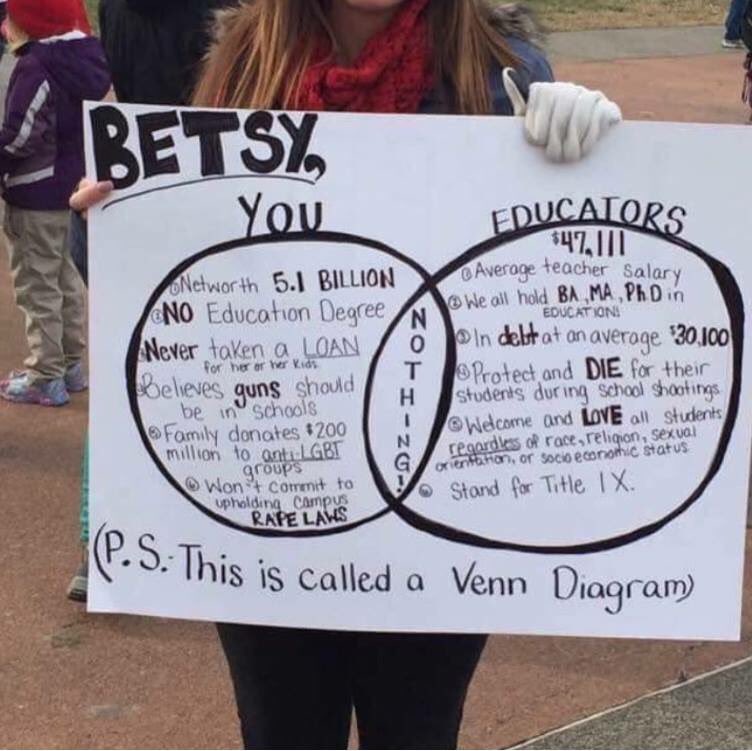 BETSY,
YOU
① Networth 5.1 BILLION
② NO Education Degree
Never taken a LOAN
for her or her kids.
Believes guns should
be in schools
⑤ Family donates $200
million to anti-LGBT
groups
⑥ Won't commit to
upholding campus
RAPE LAWS
NOTHING!
EDUCATORS
$47,111
① Average teacher salary
② We all hold BA, MA, PhD in
EDUCATION!
③ In debt at an average $30,100
④ Protect and DIE for their
students during school shootings
⑤ Welcome and LOVE all students
regardless of race, religion, sexual
orientation, or socioeconomic status
⑥ Stand for Title IX.
(P.S.: This is called a Venn Diagram)